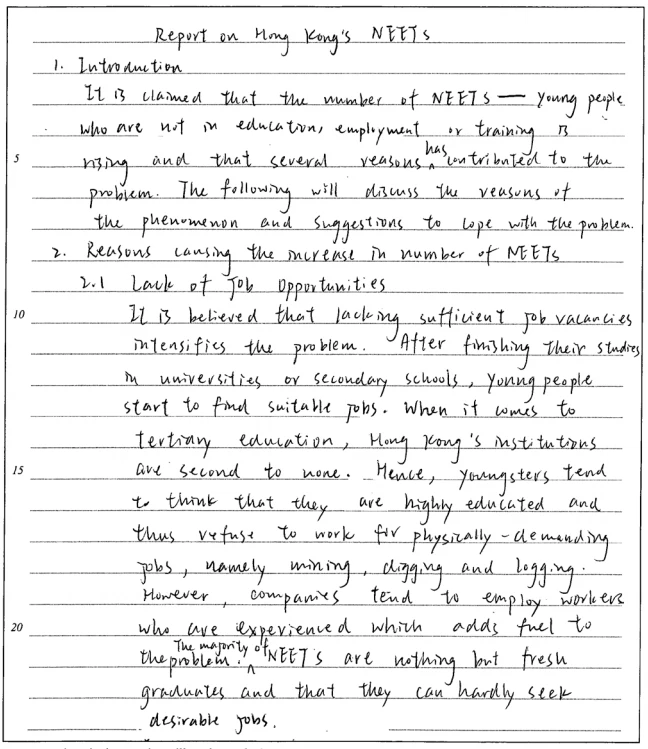 Report on Hong Kong's NEETs
1. Introduction
It is claimed that the number of NEETs — young people
who are not in education, employment or training is
5 rising and that several reasons has contributed to the
problem. The following will discuss the reasons of
the phenomenon and suggestions to cope with the problem.
2. Reasons causing the increase in number of NEETs
2.1 Lack of Job Opportunities
10 It is believed that lacking sufficient job vacancies
intensifies the problem. After finishing their studies
in universities or secondary schools, young people
start to find suitable jobs. When it comes to
tertiary education, Hong Kong's institutions
15 are second to none. Hence, youngsters tend
to think that they are highly educated and
thus refuse to work for physically-demanding
jobs, namely mining, digging and logging.
However, companies tend to employ workers
20 who are experienced which adds fuel to
the problem. The majority of NEETs are nothing but fresh
graduates and that they can hardly seek
desirable jobs.